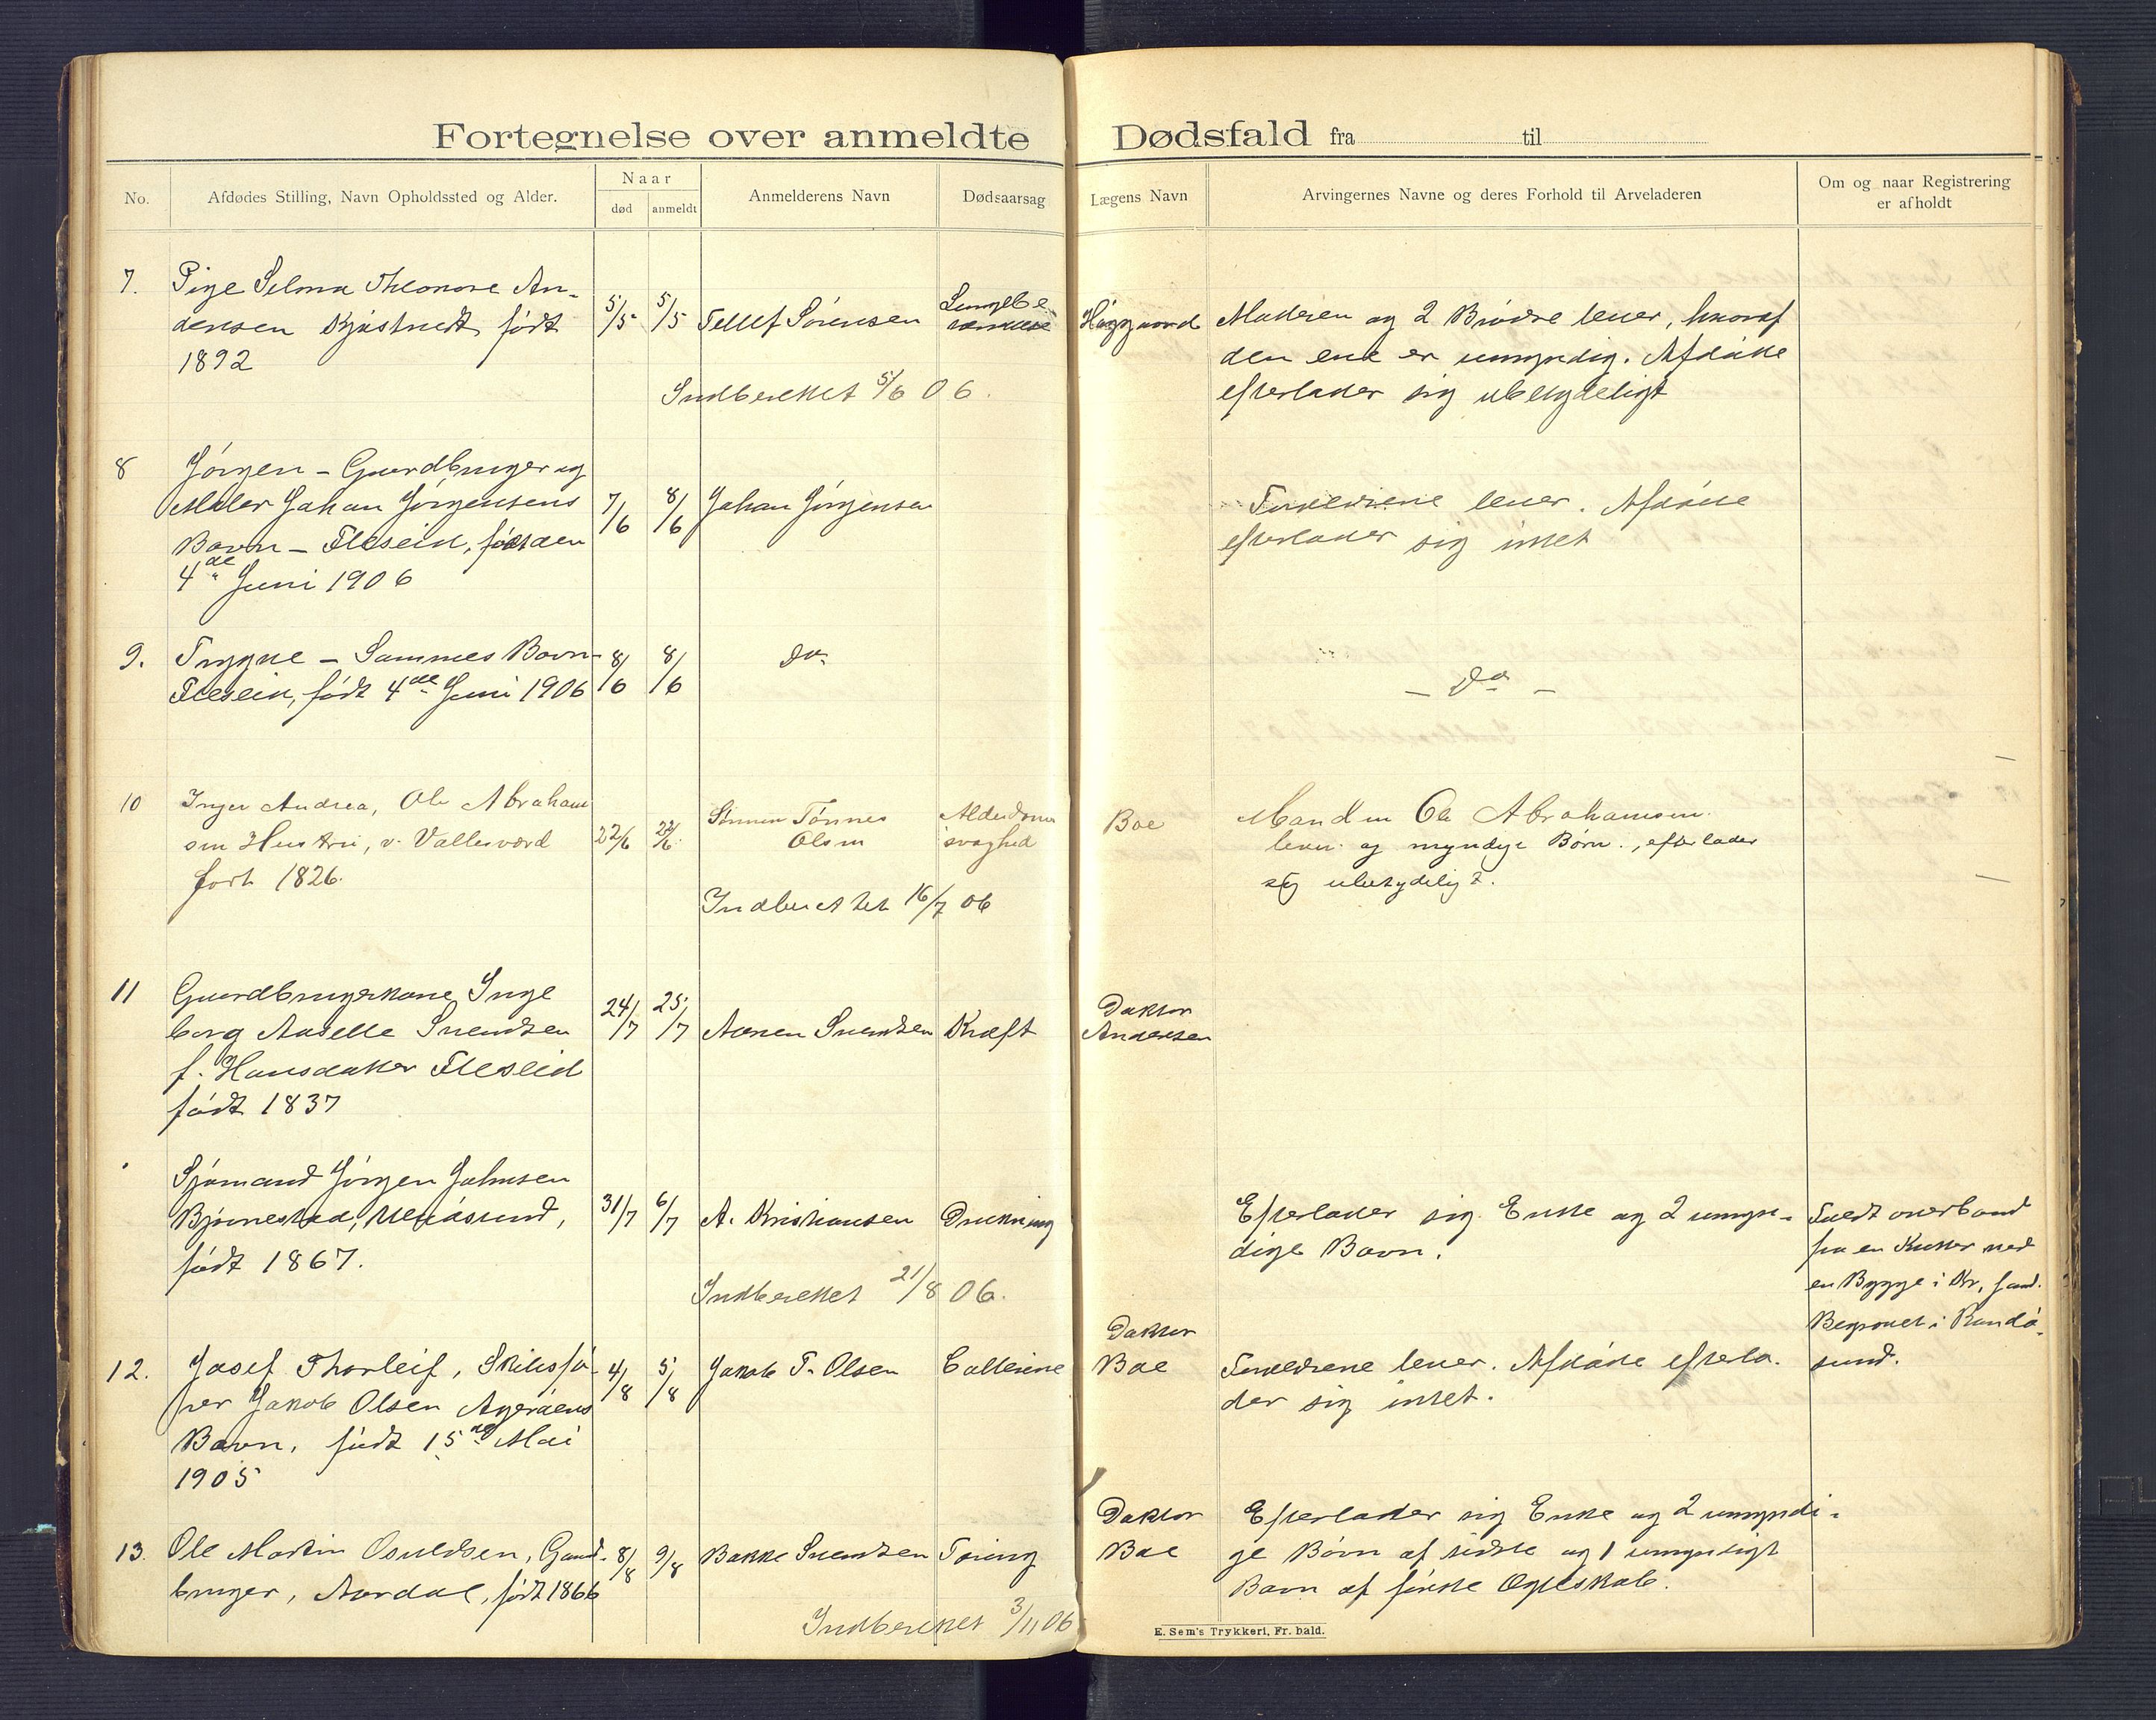 Fortegnelse over anmeldte Dødsfald fra til
No. Afdødes Stilling, Navn Opholdssted og Alder. Naar død anmeldt Anmelderens Navn Dødsaarsag Lægens Navn Arvingernes Navne og deres Forhold til Arveladeren Om og naar Registrering er afholdt
7. Pige Selma Theonore An-
dersen født
1892
5/5 5/5 Tellef Sørensen Lungebe-
tændelse
Høggaard
Moderen og 2 Brødre lever, hvoraf
den ene er umyndig. Afdøde
efterlader sig ubetydeligt
Indberettet 5/6 06.
8 Jørgen – Gaardbruger og
Maler Johan Jørgensens
Barn – Fleseid, født den
4de Juni 1906
7/6 8/6 Johan Jørgensen
Forældrene lever. Afdøde
efterlader sig intet
9. Trygve – Sammes Barn –
Fleseid, født 4de Juni 1906
8/6 8/6 Do
– Do –
10 Inger Andrea, Ole Abraham
sen Hustru, v. Vallesværd
født 1826.
22/6 22/6 Sønnen Tønnes
Olsen
Alderdoms
svaghed
Boe
Manden Ole Abrahamsen
lever og myndige Børn., efterlader
sig ubetydeligt.
Indberettet 16/7 06
11 Gaardbrugerkone Inge
borg Svendsen
f. Hansdatter Fleseid
født 1837
24/7 25/7 Svendsen Kræft
Doktor
Andersen
Sjømand Jørgen Johnsen
Bjørnestad,
født 1867.
31/7 6/7 A. Kristiansen Drukning
Efterlader sig Enke og 2 umyn-
dige Børn.
Faldt overbord
fra en Kutter ved
en Brygge i Kr. sand.
Begravet i Randø-
sund.
Indberettet 21/8 06.
12. Josef Thorleif, Skibsfø-
rer Jakob Olsen Agerøens
Barn, født 15de Mai
1905
4/8 5/8 Jakob T. Olsen Collerine
Doktor
Boe
Forældrene lever. Afdøde efterla-
der sig intet.
13. Ole Martin Osuldsen, Gaard-
bruger, Aardal, født 1866
8/8 9/8 Bakke Svendsen Tæring
Doktor
Boe
Efterlader sig Enke og 2 umyndi-
ge Børn af sidste og 1 umyndigt
Barn af første Ægteskab.
Indberettet 3/11 06
E. Sem's Trykkeri, Fr. hald.